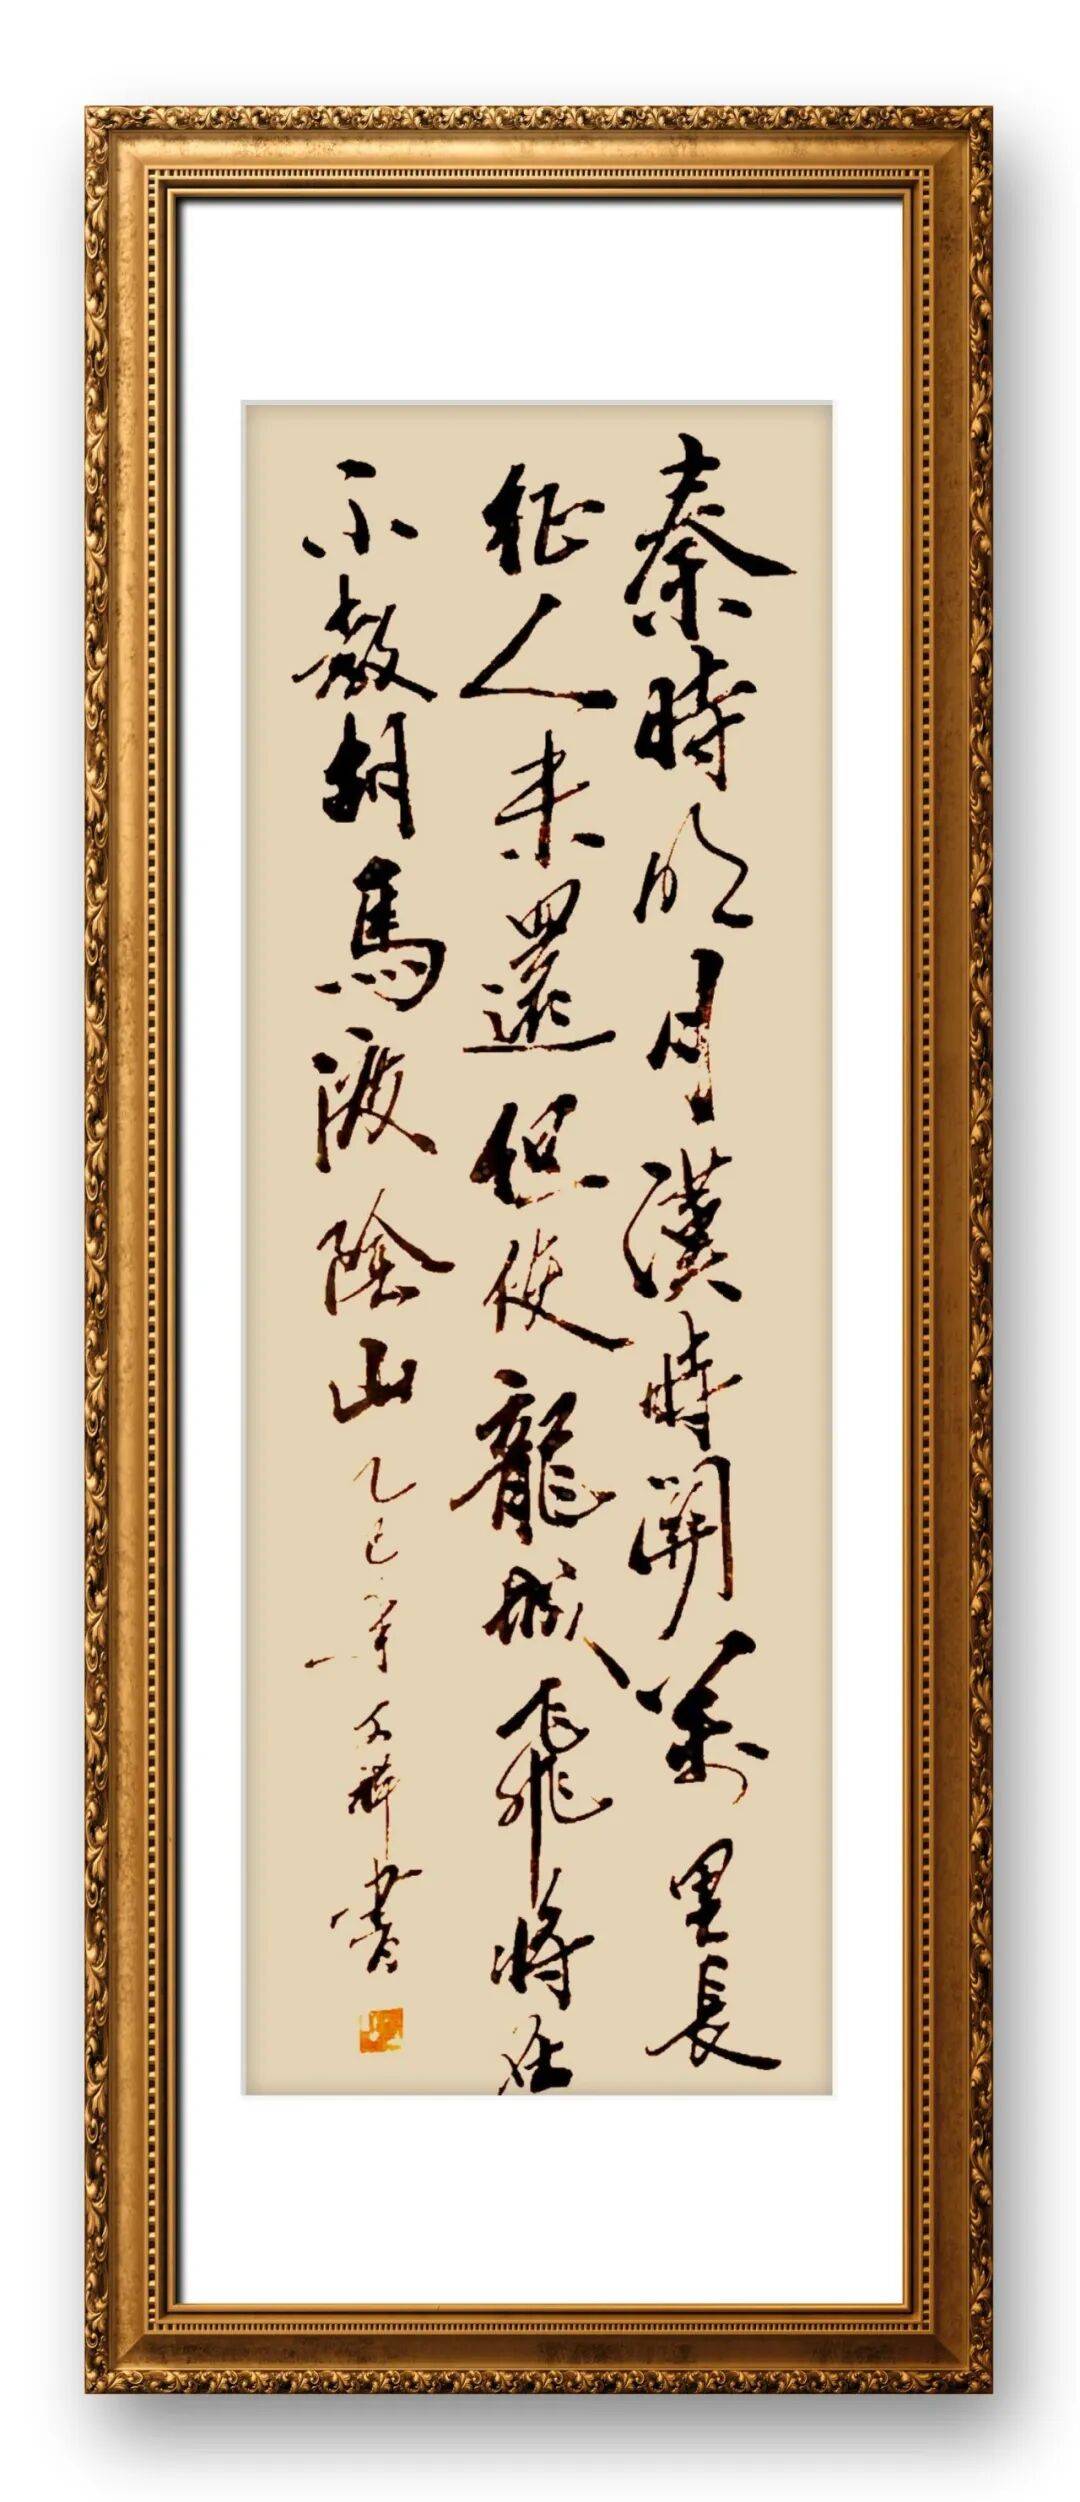 秦時明月漢時關萬里長
征人未還但使龍城飛將在
不教胡馬渡陰山
乙巳年文書